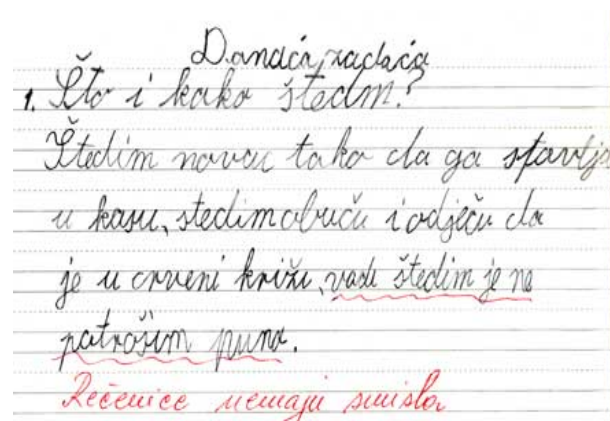 Domaća zadaća
1. Što i kako štedim?
Štedim novac tako da ga stavlja
u kasu, stedim obuću i odjeću da
je u crveni križu, vade štedim je ne
patrošim puno.
Rečenice nemaju smisla